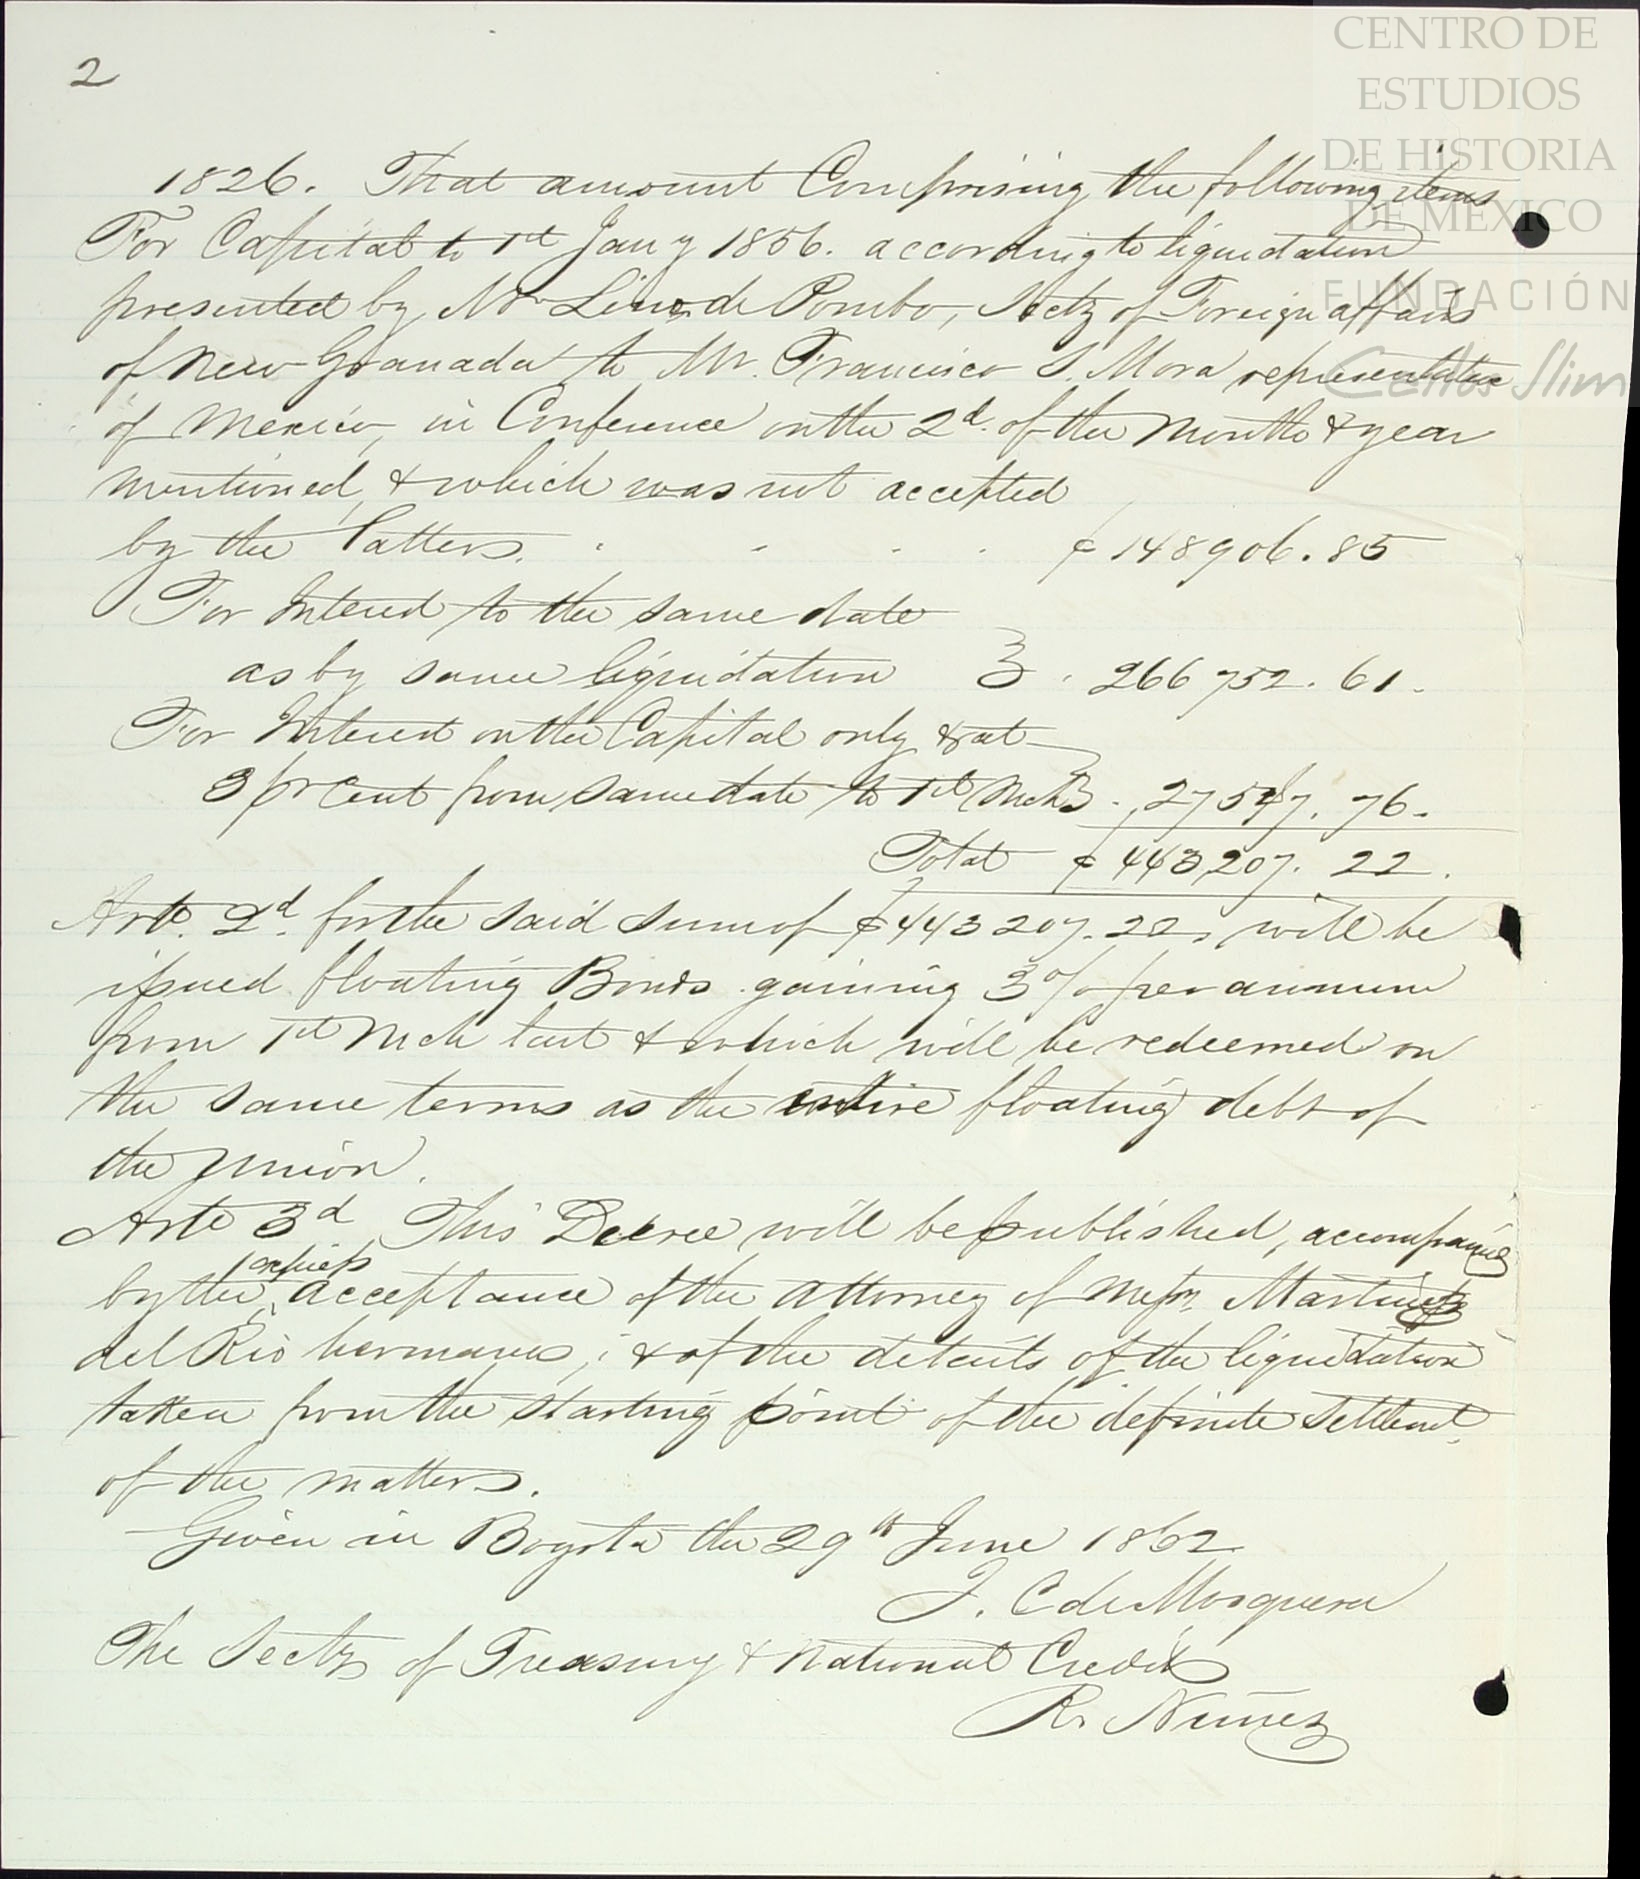 CENTRO DE
ESTUDIOS
DE HISTORIA
DE MEXICO
FUNDACIÓN
Carlos Slim
2
1826. That amount Comprising the following items
For Capital to 1st Jany 1856. according to liquidation
presented by Mr Lino de Pombo, Secty of Foreign affairs
of New Granada to Mr. Francisco S. Mora representative
of Mexico, in Conference on the 2d. of the Month & year
mentioned, & which was not accepted
by the latters. . . . . $ 148906.85
For Interest to the same date
as by same liquidation } . 266752.61.
For Interest on the Capital only & at
3 pr Cent from same date to 1st Mch } . 27547.76.
Total $ 443,207.22.
Arte. 2d. for the said sum of $443207.22, will be
issued floating Bonds gaining 3% per annum
from 1st Mch last & which will be redeemed on
the same terms as the entire floating debt of
the Union.
Arte 3d This Decree will be published, accompanied
by the copies acceptance of the Attorney of Messrs. Martinez
del Rio hermanos, ; & of the details of the liquidation
taken from the starting point of the definite settlemt.
of the matters.
Given in Bogota the 29th June 1862
J. C de Mosquera
The Secty of Treasury & National Credit
R. Nuñez